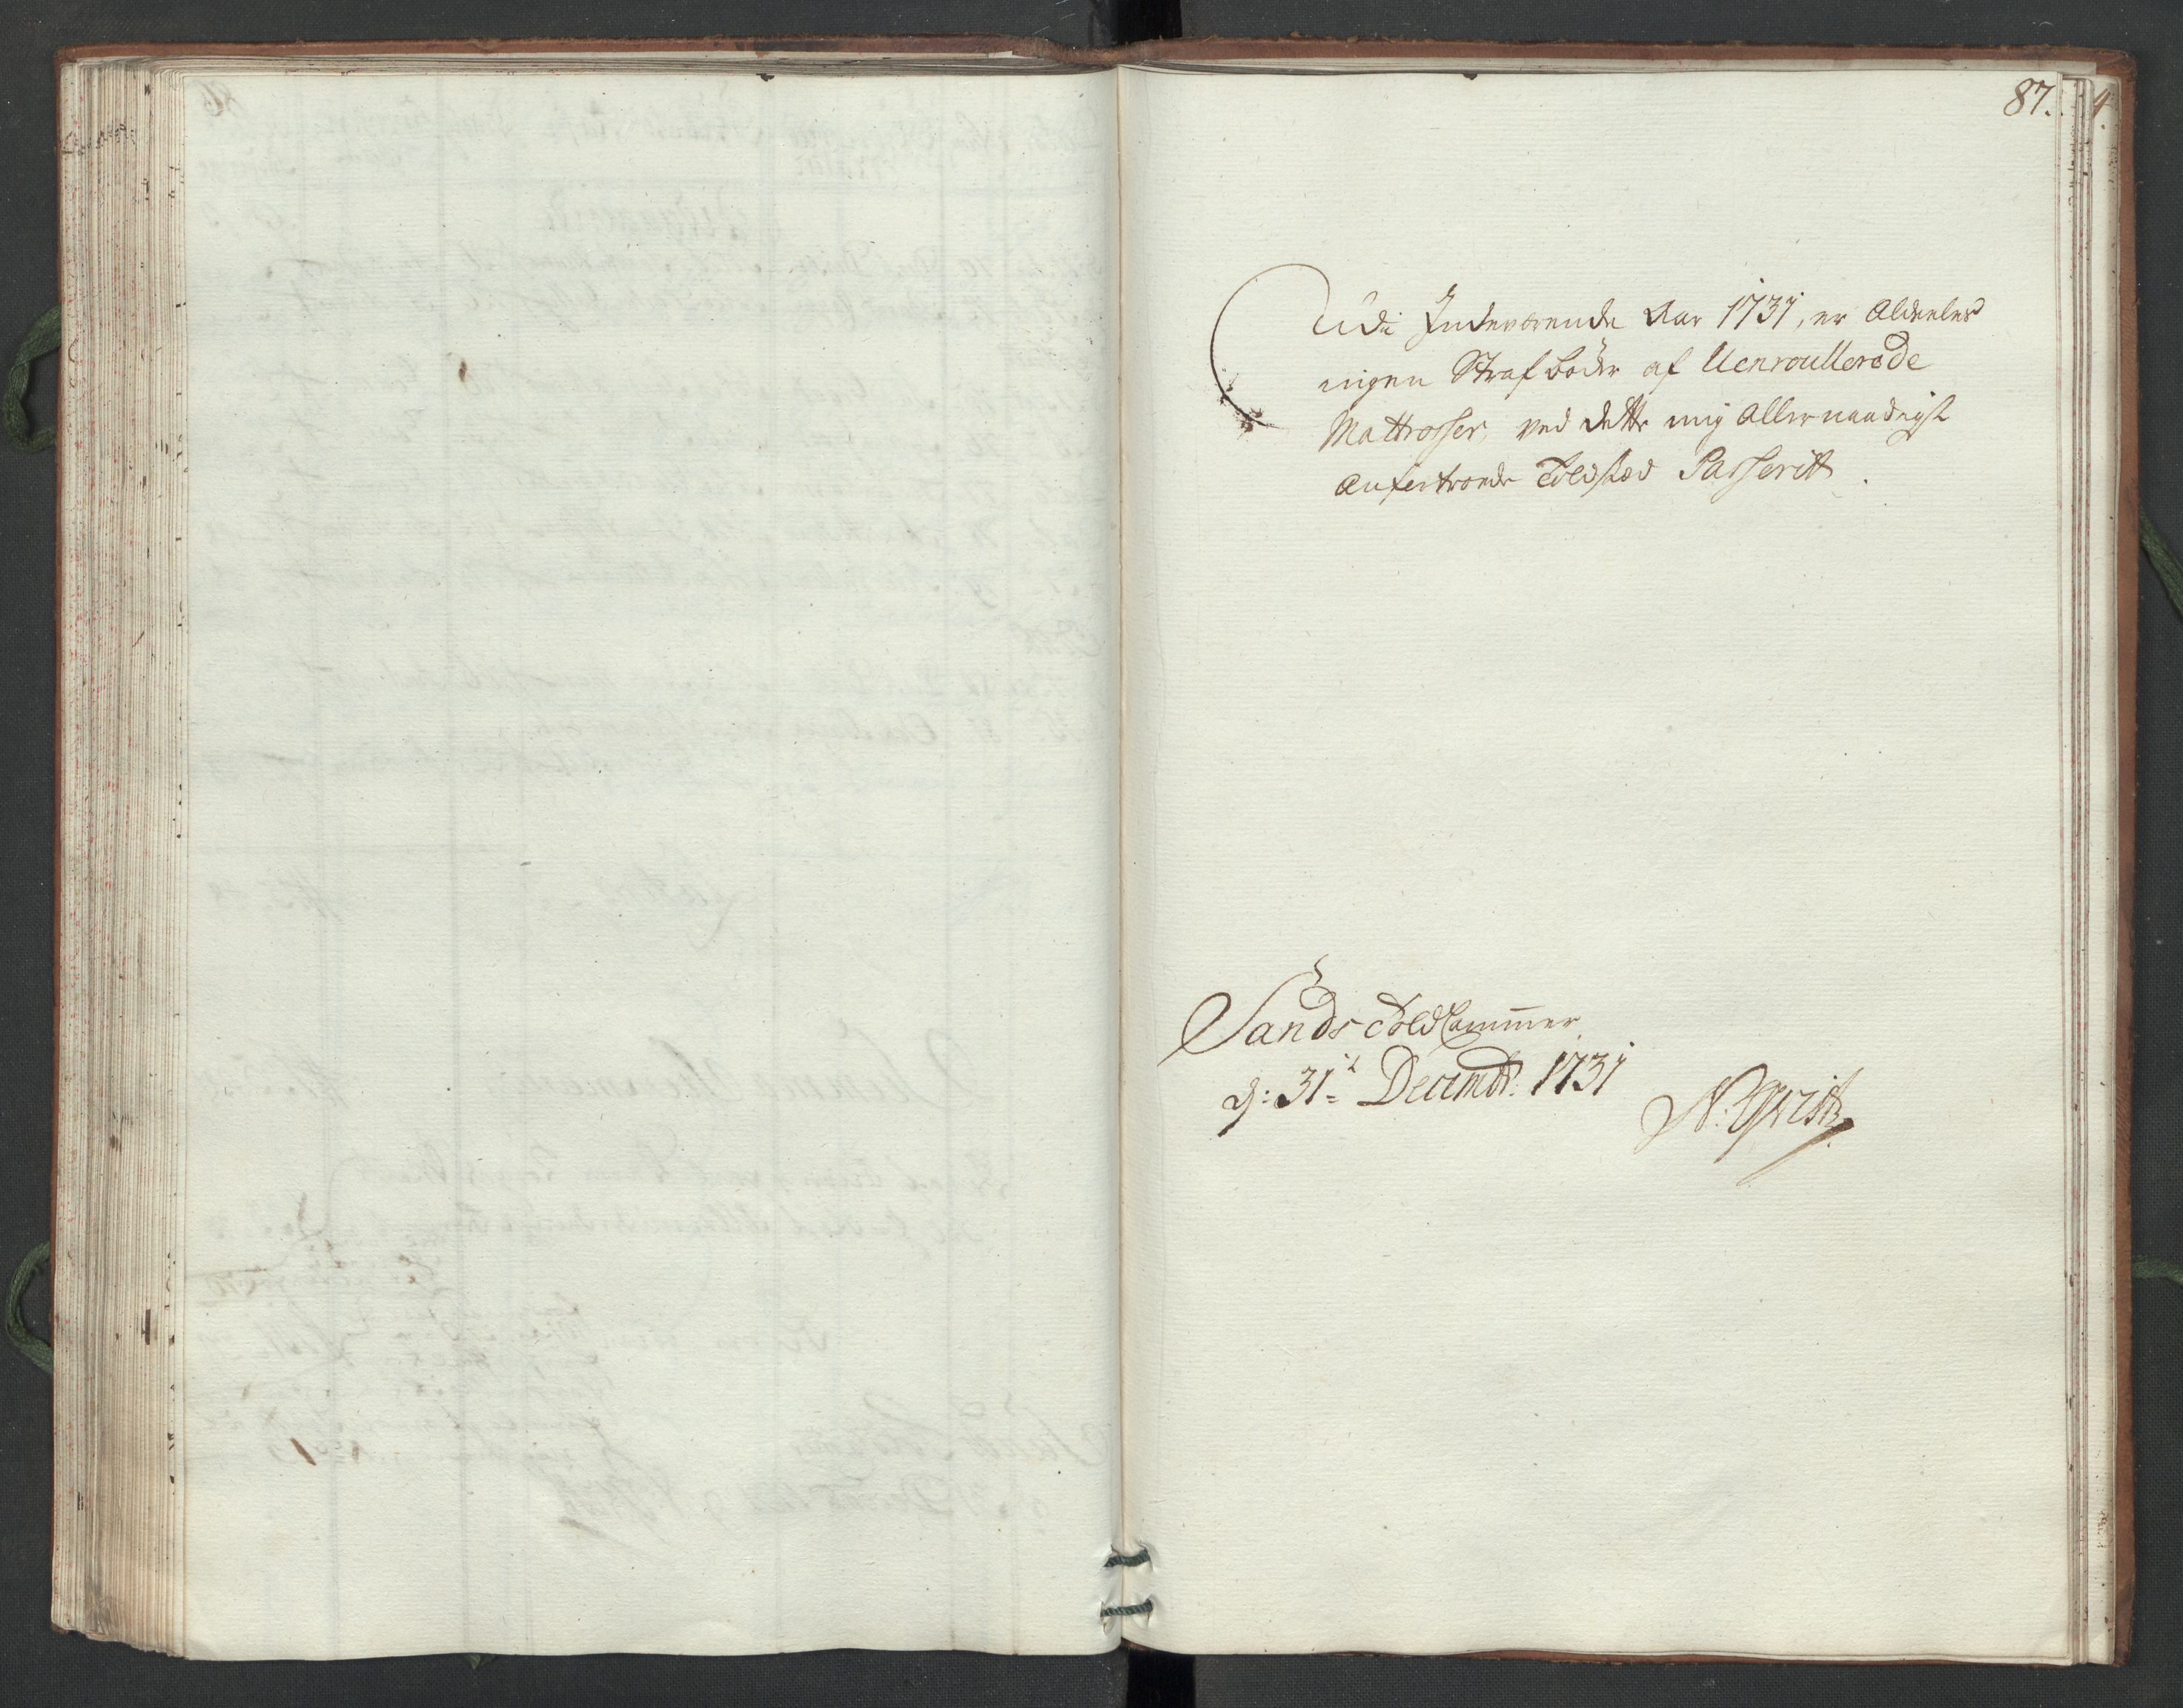 87.
Udi Indeværende Aar 1731, er Aldeeles
ingen Straf bøder af Uenroullerede
Mattrosser, ved dette mig Allernaadigst
Anfertroede Toldsted Passerit.
Sands Told Cammer
d: 31t Decembr: 1731